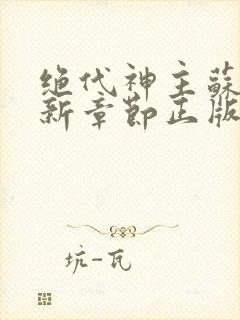 绝代神主蘇
新章節正版
坑-瓦